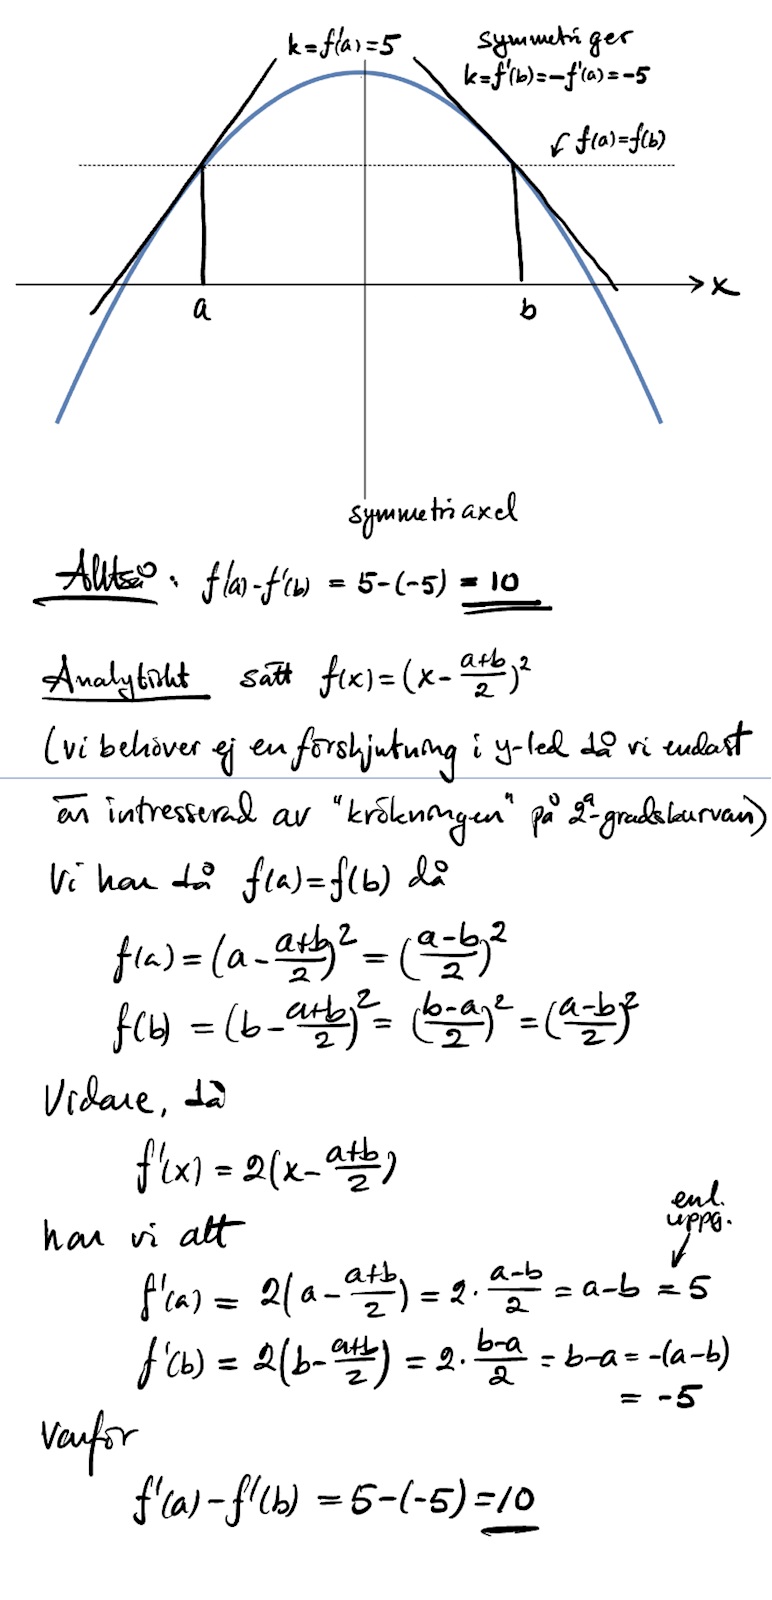 k=f'(a)=5
symmetri ger
k=f'(b)=-f'(a)=-5
f(a)=f(b)
x
a
b
symmetriaxel
Alltså: f'(a)-f'(b) = 5-(-5) = 10
Analytiskt sätt f(x)=(x-\frac{a+b}{2})^2
(vi behöver ej en förskjutning i y-led då vi endast
är intresserad av "krökningen" på 2a-gradskurvan)
Vi har då f(a)=f(b) då
f(a)=(a-\frac{a+b}{2})^2=(\frac{a-b}{2})^2
f(b)=(b-\frac{a+b}{2})^2=(\frac{b-a}{2})^2=(\frac{a-b}{2})^2
Vidare, då
f'(x)=2(x-\frac{a+b}{2})
har vi att
enl.
uppg.
f'(a)=2(a-\frac{a+b}{2})=2·\frac{a-b}{2}=a-b=5
f'(b)=2(b-\frac{a+b}{2})=2·\frac{b-a}{2}=b-a=-(a-b)
=-5
Varför
f'(a)-f'(b)=5-(-5)=10